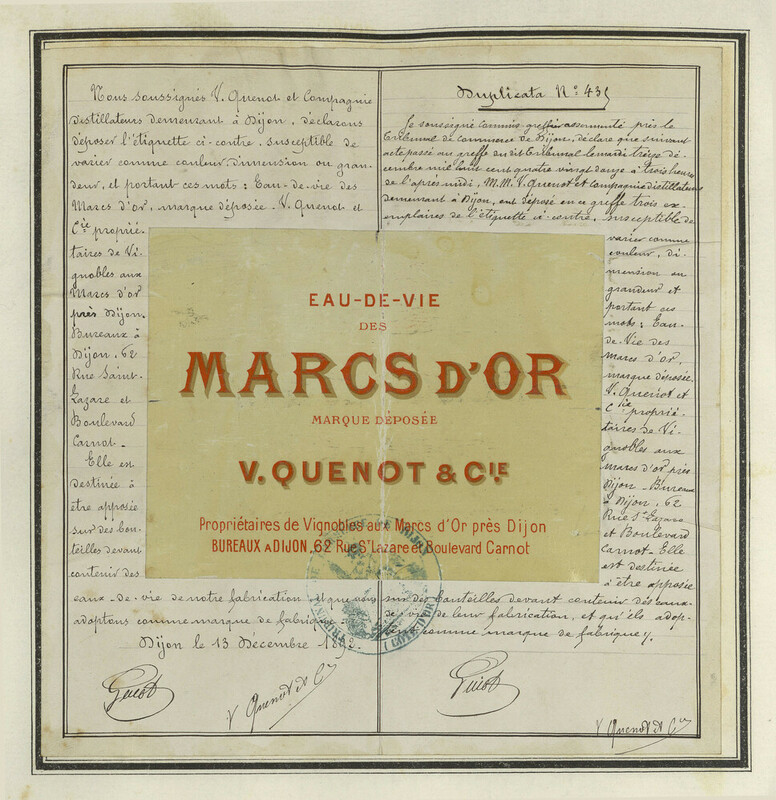 Nous soussignés V. Quenot et Compagnie
distillateurs demeurant à Dijon, déclarons
déposer l'étiquette ci-contre, susceptible de
varier comme couleur dimension ou gran-
deur, et portant ces mots: Eau-de-vie des
Marcs d'or, marque déposée - V. Quenot et
Cie proprié-
taires de Vi-
gnobles aux
Marcs d'or
près Dijon.
Bureaux à
Dijon, 62
Rue Saint-
Lazare et
Boulevard
Carnot_
Elle est
destinée à
être apposée
sur des bou-
teilles devant
contenir des
eaux-de-vie de notre fabrication et que nous
adoptons comme marque de fabrique.
Dijon le 13 Décembre 1892.
Guiot
V Quenot et Cie
Duplicata No 435
Je soussigné commis greffier assermenté près le
tribunal de commerce de Dijon, déclare que suivant
acte passé au greffe du dit tribunal le mardi treize dé-
cembre mil huit cent quatre vingt douze à trois heures
de l'après midi, M.M. V. Quenot et Compagnie distillateurs
demeurant à Dijon, ont déposé en ce greffe trois ex-
emplaires de l'étiquette ci-contre, susceptible de
varier comme
couleur, di-
mension ou
grandeur et
portant ces
mots: Eau-
de-Vie des
Marcs d'or,
marque déposée
V. Quenot et
Cie proprié-
taires de Vi-
gnobles aux
marcs d'or près
Dijon - Bureaux
à Dijon, 62
Rue St Lazare
et Boulevard
Carnot - Elle
est destinée
à être apposée
sur des bouteilles devant contenir des eaux-
de-vie de leur fabrication, et qu'ils adop-
comme marque de fabrique.
Guiot
V Quenot et Cie
EAU-DE-VIE
DES
MARCS D'OR
MARQUE DÉPOSÉE
V. QUENOT & CIE.
Propriétaires de Vignobles aux Marcs d'Or près Dijon
BUREAUX A DIJON, 62 Rue St Lazare et Boulevard Carnot